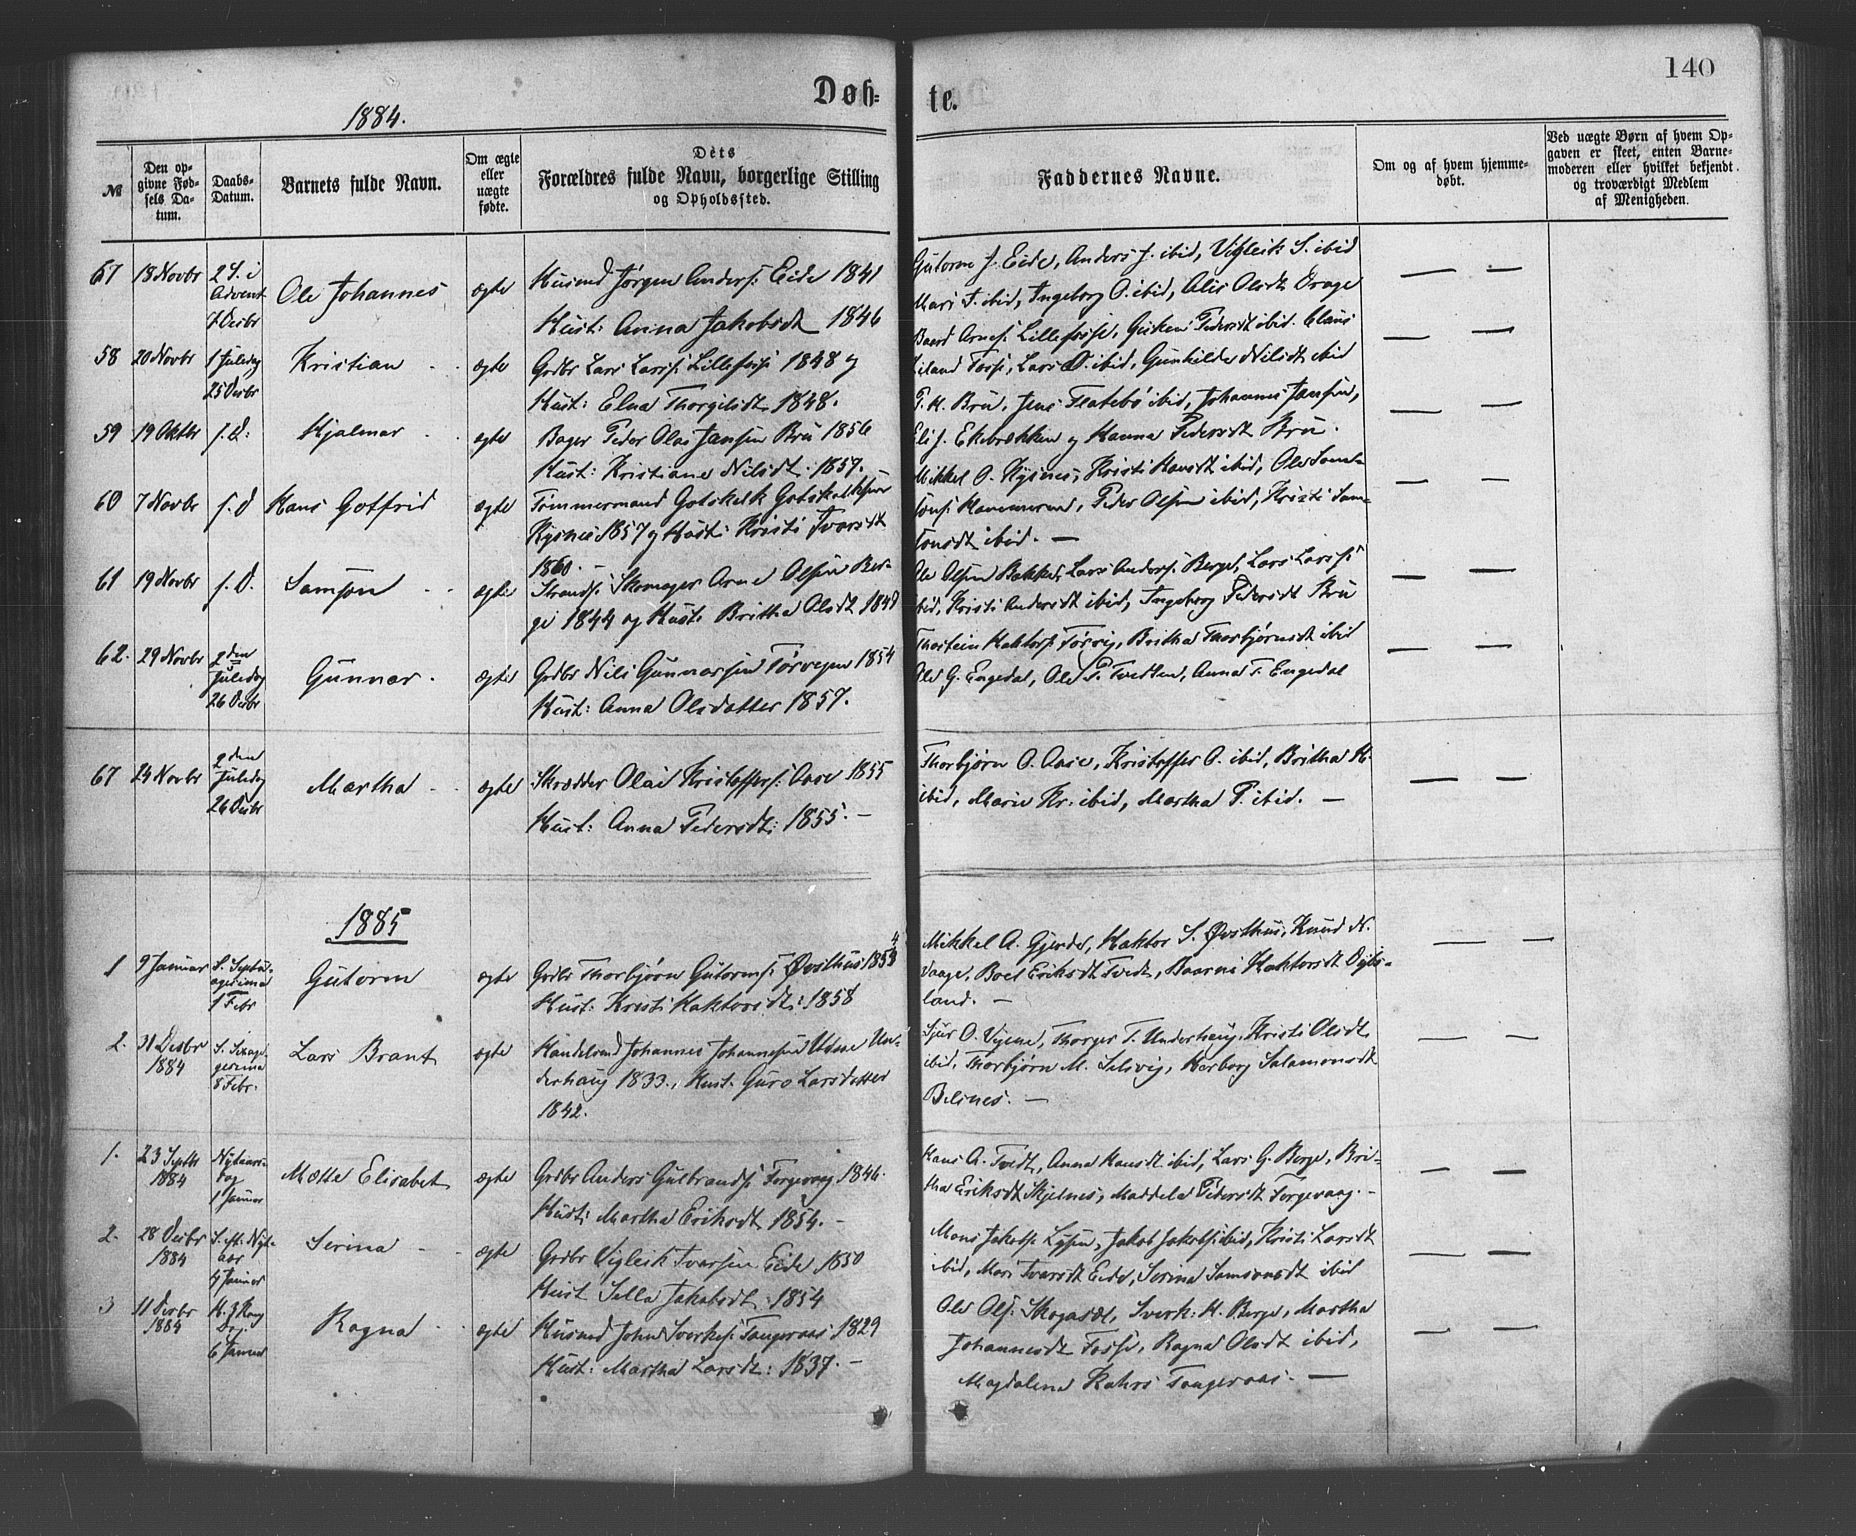 140
Døb-
te.
1884.
№
Den op-
givne Fød-
sels Da-
tum.
Daabs-
Datum.
Barnets fulde Navn.
Om ægte
eller
uægte
fødte.
Dets
Forældres fulde Navn, borgerlige Stilling
og Opholdssted.
Faddernes Navne.
Om og af hvem hjemme-
døbt.
Ved uægte Børn af hvem Op-
gaven er skeet, enten Barne-
moderen eller hvilket bekjendt
og troværdigt Medlem
af Menigheden.
67 18 Novbr 2 S. i
Advent
7 Desbr
Ole Johannes ægte
Husmd Jørgen Anders: Eide 1841
Hust: Anna Jakobsdt 1846
Gutorm J. Eide, Anders J. ibid, Vigleik S. ibid
Mari T. ibid, Ingeborg O. ibid, Alis Olsdt Drage
58 20 Novbr 1 Juledag
25 Desbr
Kristian ægte
Grdbr Lars Larss: Lillefosse 1848 og
Hust: Elna Thorgilsdt 1848.
Baard Arnes: Lillefosse, Gurine Pedersdt ibid. Claus
Fosse, Lars O. ibid, Gunhilde Nilsdt ibid
59 19 Oktbr s. D: Hjalmar ægte
Bager Peder Olai Jansen Bru 1856
Hust: Kristiane Nilsdt: 1857.
P. H. Bru, Jens Flatebø ibid, Johannes Jansen,
Eli J. Ekebrekken og Hanna Pedersdt Bru.
60 7 Novbr s. D Hans Gotfrid ægte
Tømmermand Gotskalk Gotskalksen
Rysnes 1857 og Hust: Kristi Ivarsdt
1860.
Mikkel O. Rysnes, Kristi Hansdt ibid, Ole Sam-
sons: Kammerud, Peder Olsen ibid, Kristi Sam-
sonsdt ibid. —
61 19 Novbr s. D. Samson ægte
Strands: Skomager Arne Olsen Ber-
ge 1844 og Hust: Britha Olsdt 1847
Ole Olsen Bakke, Lars Anders: Berge, Lars Larss:
ibid, Kristi Andersdt ibid, Ingeborg Pedersdt Bru
62. 29 Novbr 2den
Juledag
26 Desbr
Gunnar ægte
Grdbr Nils Gunnarsen Tørvegen 1854
Hust: Anna Olsdatter 1857.
Thostein Haktors: Tørvig, Britha Thorbjørnsdt ibid
Ole G. Engedal, Ole P. Tvedten, Anna T. Engedal
67 24 Novbr 2den
Juledag
26 Desbr
Martha ægte
Skrædder Olai Kristoffers: Aase 1855
Hust: Anna Pedersdt: 1855. —
Thorbjørn O. Aase, Kristoffer O. ibid, Britha H.
ibid, Marie Kr. ibid, Martha P. ibid. —
1885
1 9 Januar S. Septua-
gesima
1 Febr
Gutorm ægte
Grdbr Thorbjørn Gutorms: Østhus 1853
4
Hust: Kristi Haktorsdt: 1858
Mikkel A. Gjerde, Haktor S. Østhus, Knud N.
Vaage, Boel Eriksdt Tvedt, Baarni Haktorsdt
land. —
2. 31 Desbr
1884
S. Sexage-
gesima
8 Febr.
Lars Brant ægte
Handelsmd Johannes Johannesen Un-
derhaug 1833., Hust. Guro Larsdatter
1842.
Sjur O. Vigene, Thorger T. Underhaug, Kristi Olsdt
ibid, Thorbjørn M. Selsvig, Herborg Salamonsdt
Belsnes. —
1. 23 Septbr
1884
Nytaars-
dag
1 Januar
Mette Elisabet ægte
Grdbr Anders Gulbrands: Torgevaag 1846.
Hust: Martha Eriksdt 1854. —
Hans A. Tvedt, Anna Hansdt ibid, Lars G. Berge, Bri-
tha Eriksdt Skjelnes, Maddela Pedersdt Torgevaag. —
2. 28 Desbr
1884
S. eft. Nyt-
aar
4 Januar
Serina ægte
Grdbr Vigleik Ivarsen Eide 1850
Hust Sella Jakobsdt: 1854
Mons Jakobs: Lysen, Jakob Jakobs: ibid, Kristi Larsdt
ibid, Mari Ivarsdt Eide, Serina Samsonsdt ibid
3 11 Desbr
1884
H. 3 Kong
Dag.
6 Januar
Ragna ægte
Husmd John Sverkes: Tangeraas 1829
Hust: Martha Larsdt: 1837. —
Ole Ols: Skogasæt, Sverk: H. Berge, Martha
Johannesdt Fosse, Ragna Olsdt ibid,
Magdalena Kahrs Tangeraas. —